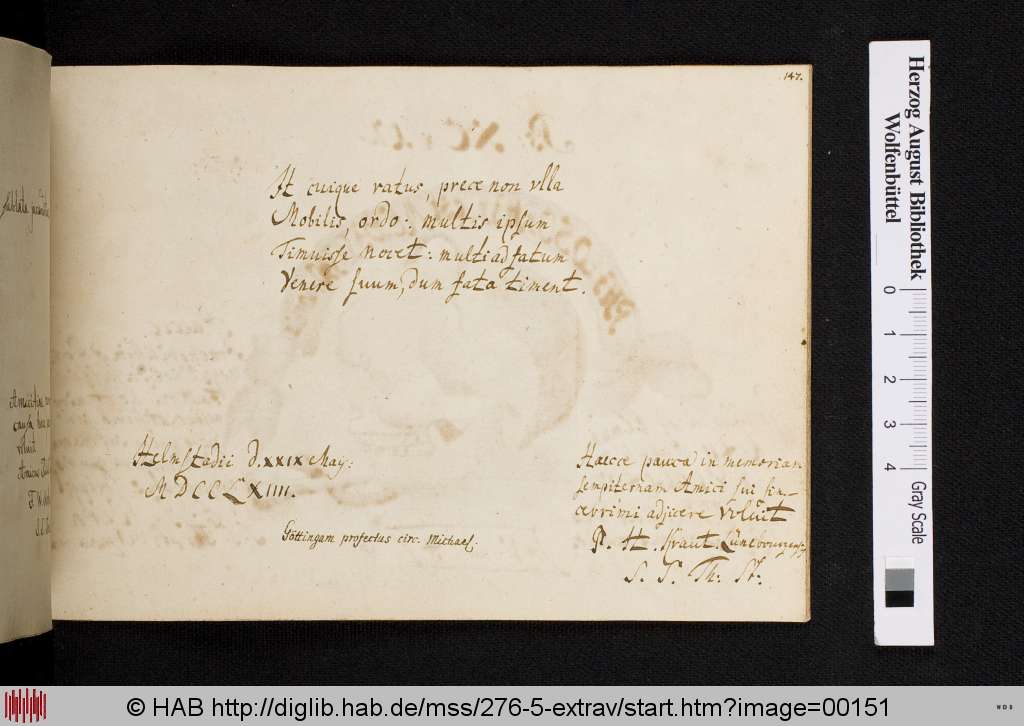 147.
It cuique ratus, prece non vlla
Mobilis, ordo: multis ipsum
Timuisse nocet: multi ad fatum
Venere suum, dum fata timent.
Helmstadii d. XXIX May:
MDCCLXIIII.
Göttingam profectus circ. Michael.
Haecce pauca in memoriam
sempiternam Amici sui sin-
cerrimi adjicere voluit
P. H. Luneburgens
S. S. Th: St:
Herzog August Bibliothek
Wolfenbüttel
0 1 2 3 4
Gray Scale
© HAB http://diglib.hab.de/mss/276-5-extrav/start.htm?image=00151
WDB